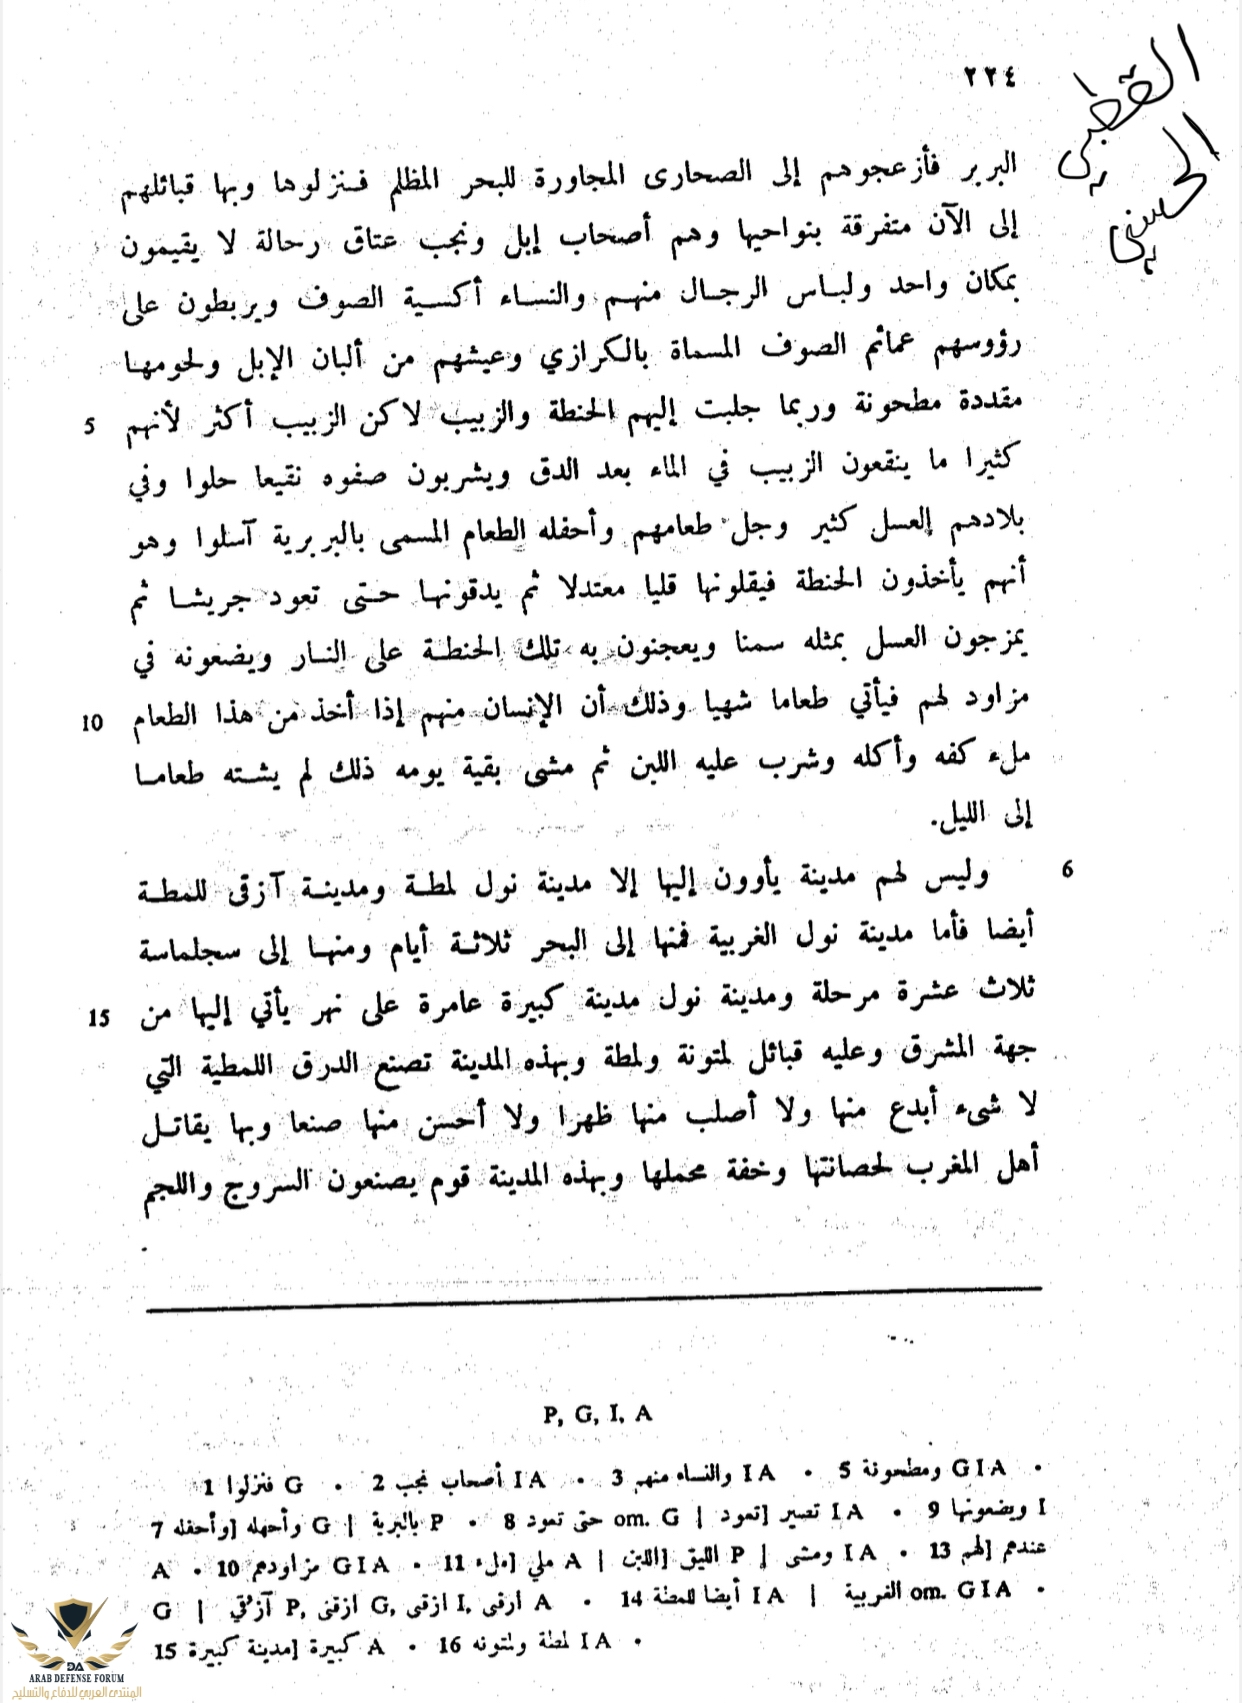 ٢٢٤
القطبي
الحسيني
البربر فأزعجوهم إلى الصحارى المجاورة للبحر المظلم فـنزلوها وبها قبائلهم
إلى الآن متفرقة بنواحيها وهم أصحاب إبل ونجب عتاق رحالة لا يقيمون
بمكان واحد ولباس الرجال منهم والنساء أكسية الصوف ويربطون على
رؤوسهم عمائم الصوف المسماة بالكرازي وعيشهم من ألبان الإبل ولحومها
5 مقددة مطحونة وربما جلبت إليهم الحنطة والزبيب لاكن الزبيب أكثر لأنهم
كثيرا ما ينقعون الزبيب في الماء بعد الدق ويشربون صفوه نقيعا حلوا وفي
بلادهم العسل كثير وجل طعامهم وأحفله الطعام المسمى بالبربرية آسلوا وهو
أنهم يأخذون الحنطة فيقلونها قليا معتدلا ثم يدقونها حتى تعود جريشا ثم
يمزجون العسل بمثله سمنا ويعجنون به تلك الحنطة على النار ويضعونه في
10 مزاود لهم فيأتي طعاما شهيا وذلك أن الإنسان منهم إذا أخذ من هذا الطعام
ملء كفه وأكله وشرب عليه اللبن ثم مشى بقية يومه ذلك لم يشته طعاما
إلى الليل.
6 وليس لهم مدينة يأوون إليها إلا مدينة نول لمطة ومدينة آزقى للمطة
أيضا فأما مدينة نول الغربية فمنها إلى البحر ثلاثة أيام ومنها إلى سجلماسة
15 ثلاث عشرة مرحلة ومدينة نول مدينة كبيرة عامرة على نهر يأتي إليها من
جهة المشرق وعليه قبائل لمتونة ولمطة وبهذه المدينة تصنع الدرق اللمطية التي
لا شىء أبدع منها ولا أصلب منها ظهرا ولا أحسن منها صنعا وبها يقاتل
أهل المغرب لحصانتها وخفة محملها وبهذه المدينة قوم يصنعون السروج واللجم
P, G, I, A
1 فنزلوا G • 2 أصحاب نجب I A • 3 والنساء منهم I A • 5 ومطحونة G I A •
7 وأحفله] وأحهله G | بالبرية P • 8 حتى تعود om. G | تعود] تصير I A • 9 ويضعونها I
A • 10 مزاودهم G I A • 11 ملء] ملي A | اللبن] الليق P | ومشى I A • 13 لهم] عندهم
G | آزقي P, ازقى G, ازقى I, أرقى A • 14 أيضا للمطة I A | الغربية om. G I A •
15 مدينة كبيرة] كبيرة A • 16 لمطة ولمتونه I A •
DA
ARAB DEFENSE FORUM
المنتدى العربي للدفاع والتسليح